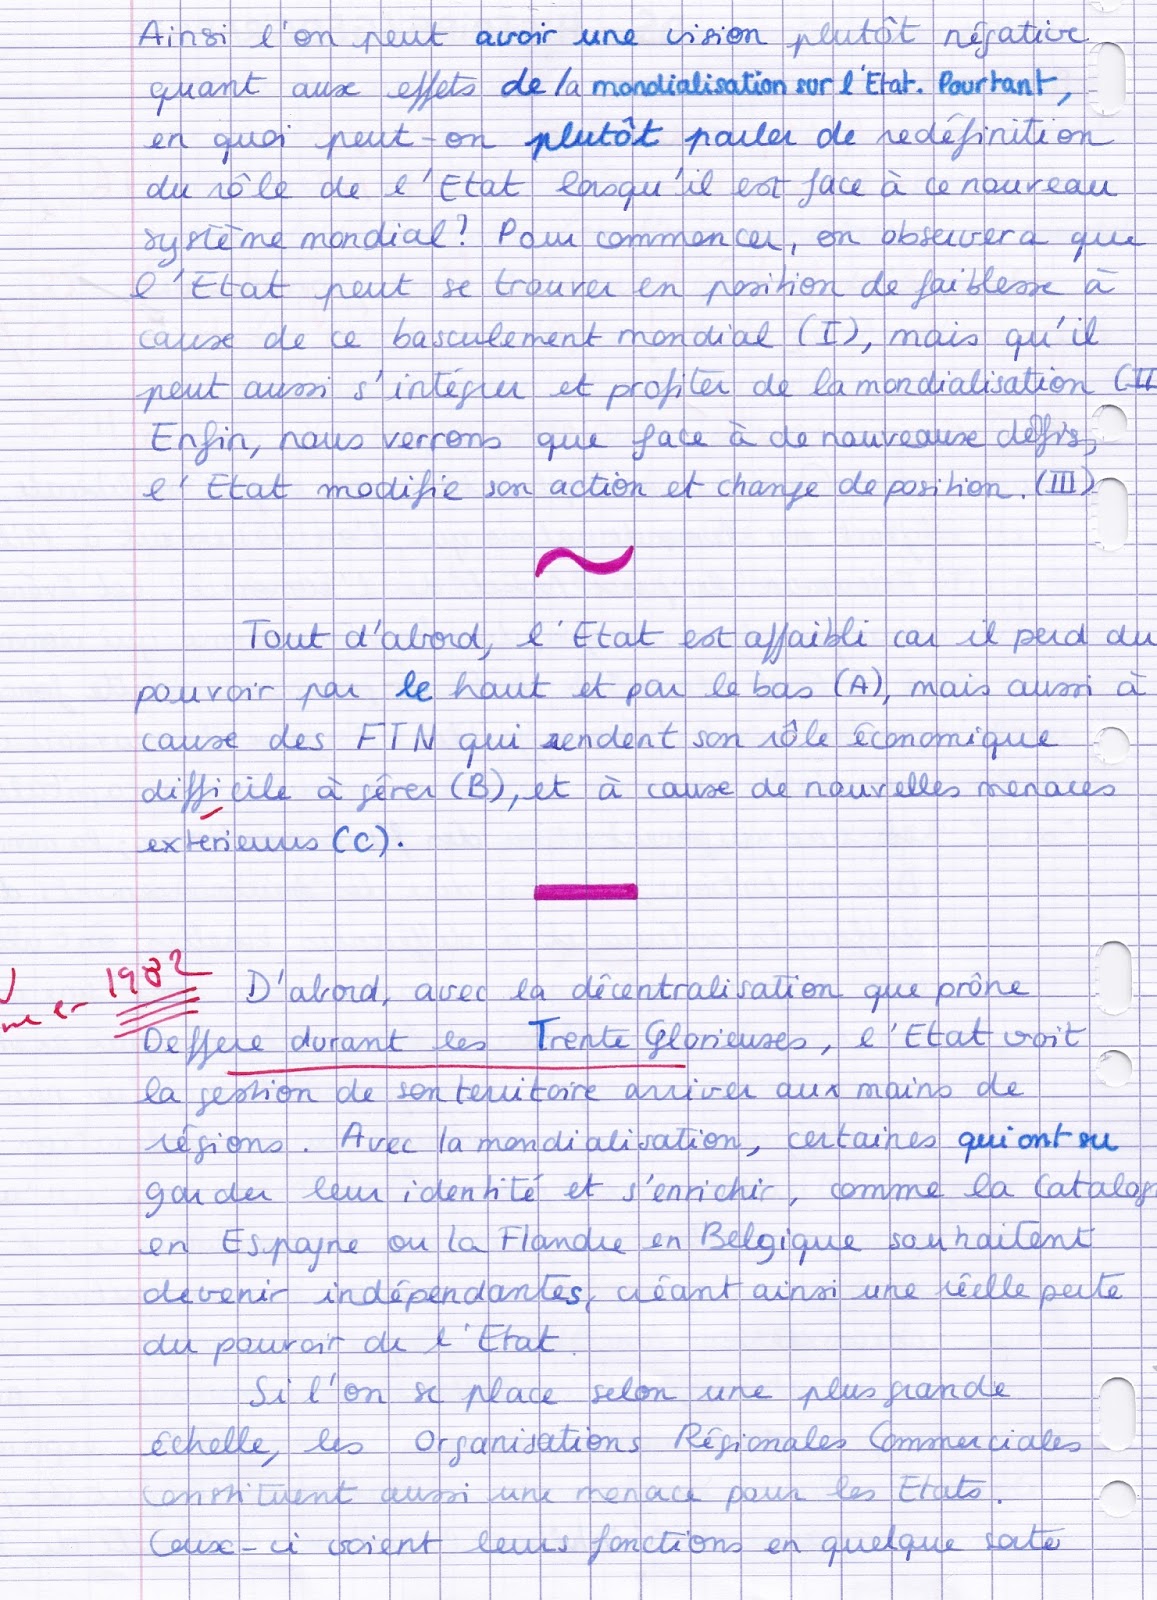 Ainsi l'on peut avoir une vision plutôt négative
quant aux effets de la mondialisation sur l'Etat. Pourtant,
en quoi peut-on plutôt parler de redéfinition
du rôle de l'Etat lorsqu'il est face à ce nouveau
système mondial? Pour commencer, on observera que
l'Etat peut se trouver en position de faiblesse à
cause de ce basculement mondial (I), mais qu'il
peut aussi s'intégrer et profiter de la mondialisation (II
Enfin, nous verrons que face à de nouveaux défis,
l'Etat modifie son action et change de position. (III)
Tout d'abord, l'Etat est affaibli car il perd du
pouvoir par le haut et par le bas (A), mais aussi à
cause des FTN qui rendent son rôle économique
difficile à gérer (B), et à cause de nouvelles menaces
extérieures (C).
1982
D'abord, avec la décentralisation que prône
Deffere durant les Trente Glorieuses, l'Etat voit
la gestion de son territoire arriver aux mains de
régions. Avec la mondialisation, certaines qui ont su
garder leur identité et s'enrichir, comme la Catalog
en Espagne ou la Flandre en Belgique souhaitent
devenir indépendantes, créant ainsi une réelle perte
du pouvoir de l'Etat.
Si l'on se place selon une plus grande
échelle, les Organisations Régionales Commerciales
constituent aussi une menace pour les Etats.
Ceux-ci voient leurs fonctions en quelque sorte